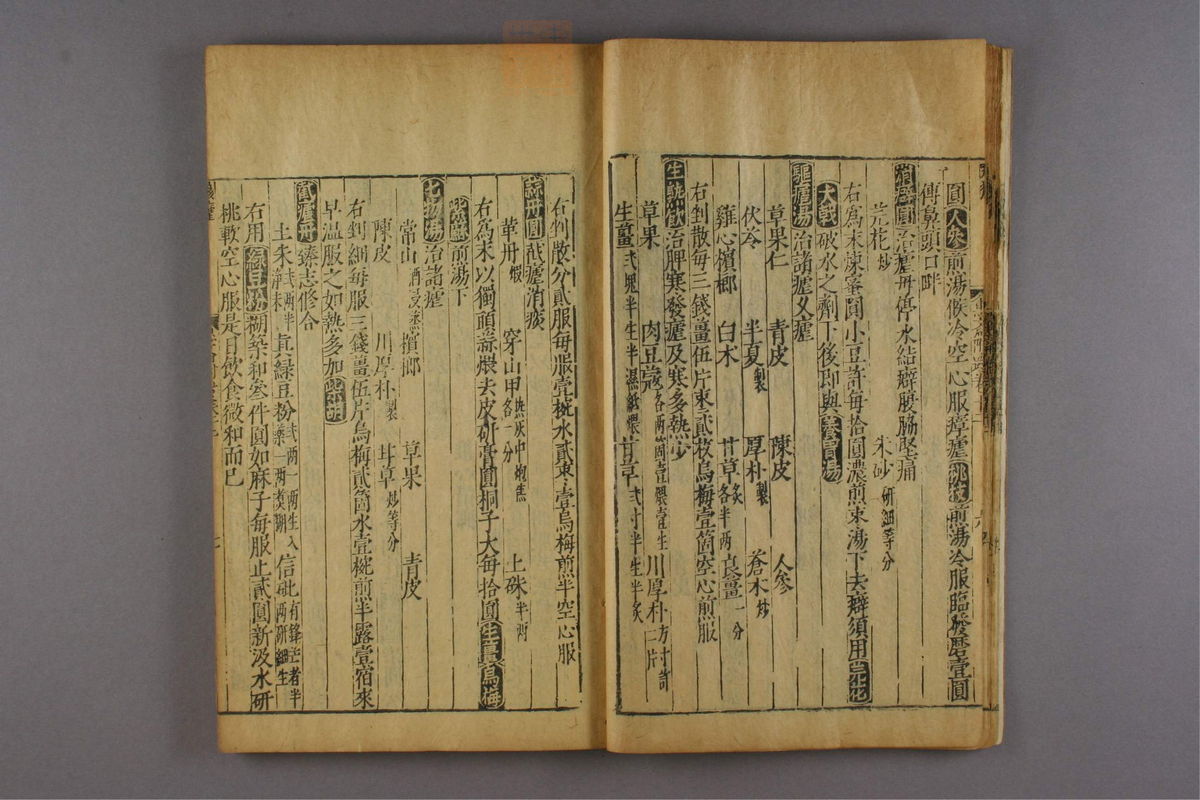 圓人參煎湯候冷空心服瘴瘧桃枝煎湯冷服臨發磨壹圓
傅鼻頭口畔
消癖圓治瘧母停水結癖腹脇堅痛
芫花炒 朱砂研細等分
右為末煉蜜圓小豆許每拾圓濃煎棗湯下去癖須用芫花
大戟破水之劑下後即與養胃湯
驅瘧湯治諸瘧久瘧
草果仁 青皮 陳皮 人參
伏苓 半夏製 厚朴製 蒼木炒
雞心檳榔 白木 甘草炙各半兩 良薑一分
右剉散每三錢薑伍片棗貳枚烏梅壹箇空心煎服
生熟飲治脾寒發瘧及寒多熱少
草果 肉豆寇各兩箇壹煨壹生 川厚朴方寸許二片
生薑弍塊半生半濕紙煨 甘草弍寸半生半炙
右剉散分貳服每服壹椀水貳棗壹烏梅煎半空心服
蒜丹圓截瘧消痰
黃丹煆 穿山甲熱灰中炮焦各一分 土硃半兩
右為末以獨頭蒜煨去皮研膏圓桐子大每拾圓生薑烏梅
紫蘇煎湯下
七物湯治諸瘧
常山酒浸蒸 檳榔 草果 青皮
陳皮 川厚朴製 甘草炒等分
右剉細每服三錢薑伍片烏梅貳箇水壹椀煎半露壹宿來
早温服之如熱多加柴胡
截瘧丹臻志修合
土朱弍兩半淨 真緑豆粉 信砒
右用緑豆粉糊築和叁件圓如麻子每服止貳圓新汲水研
桃軟空心服是日飲食微和而已